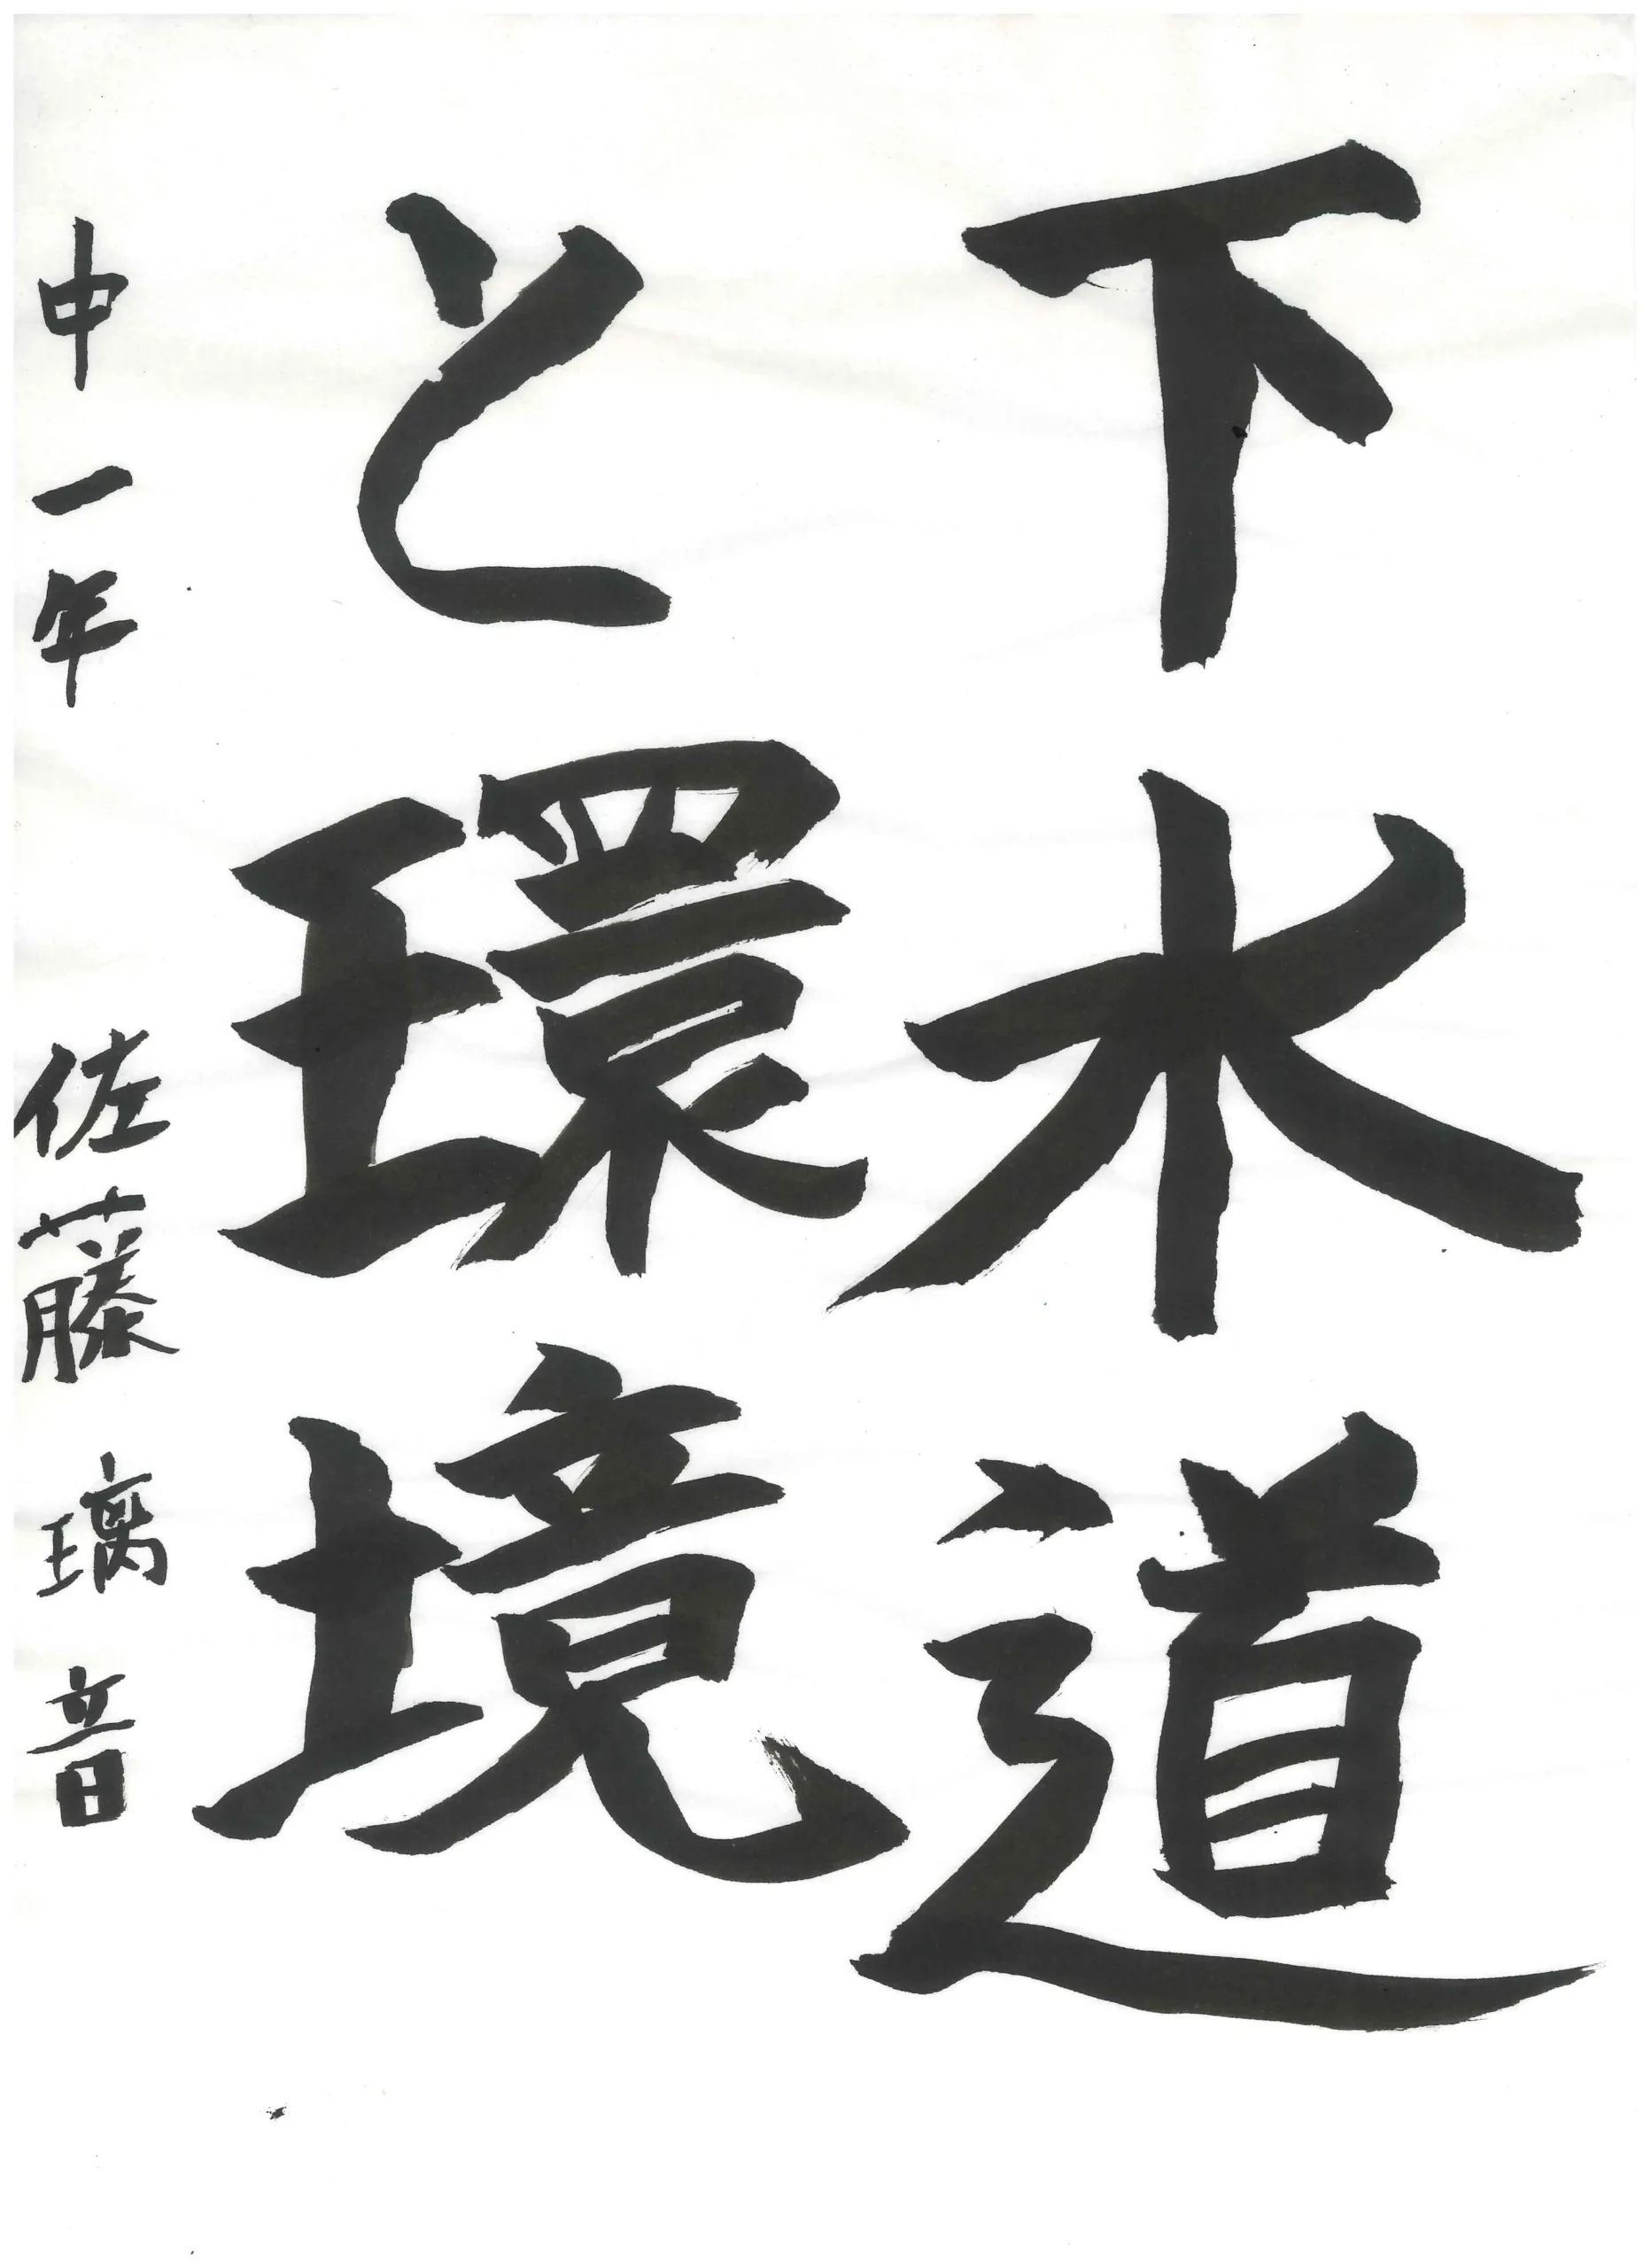 下水道
と環境
中一年 佐藤 璃音